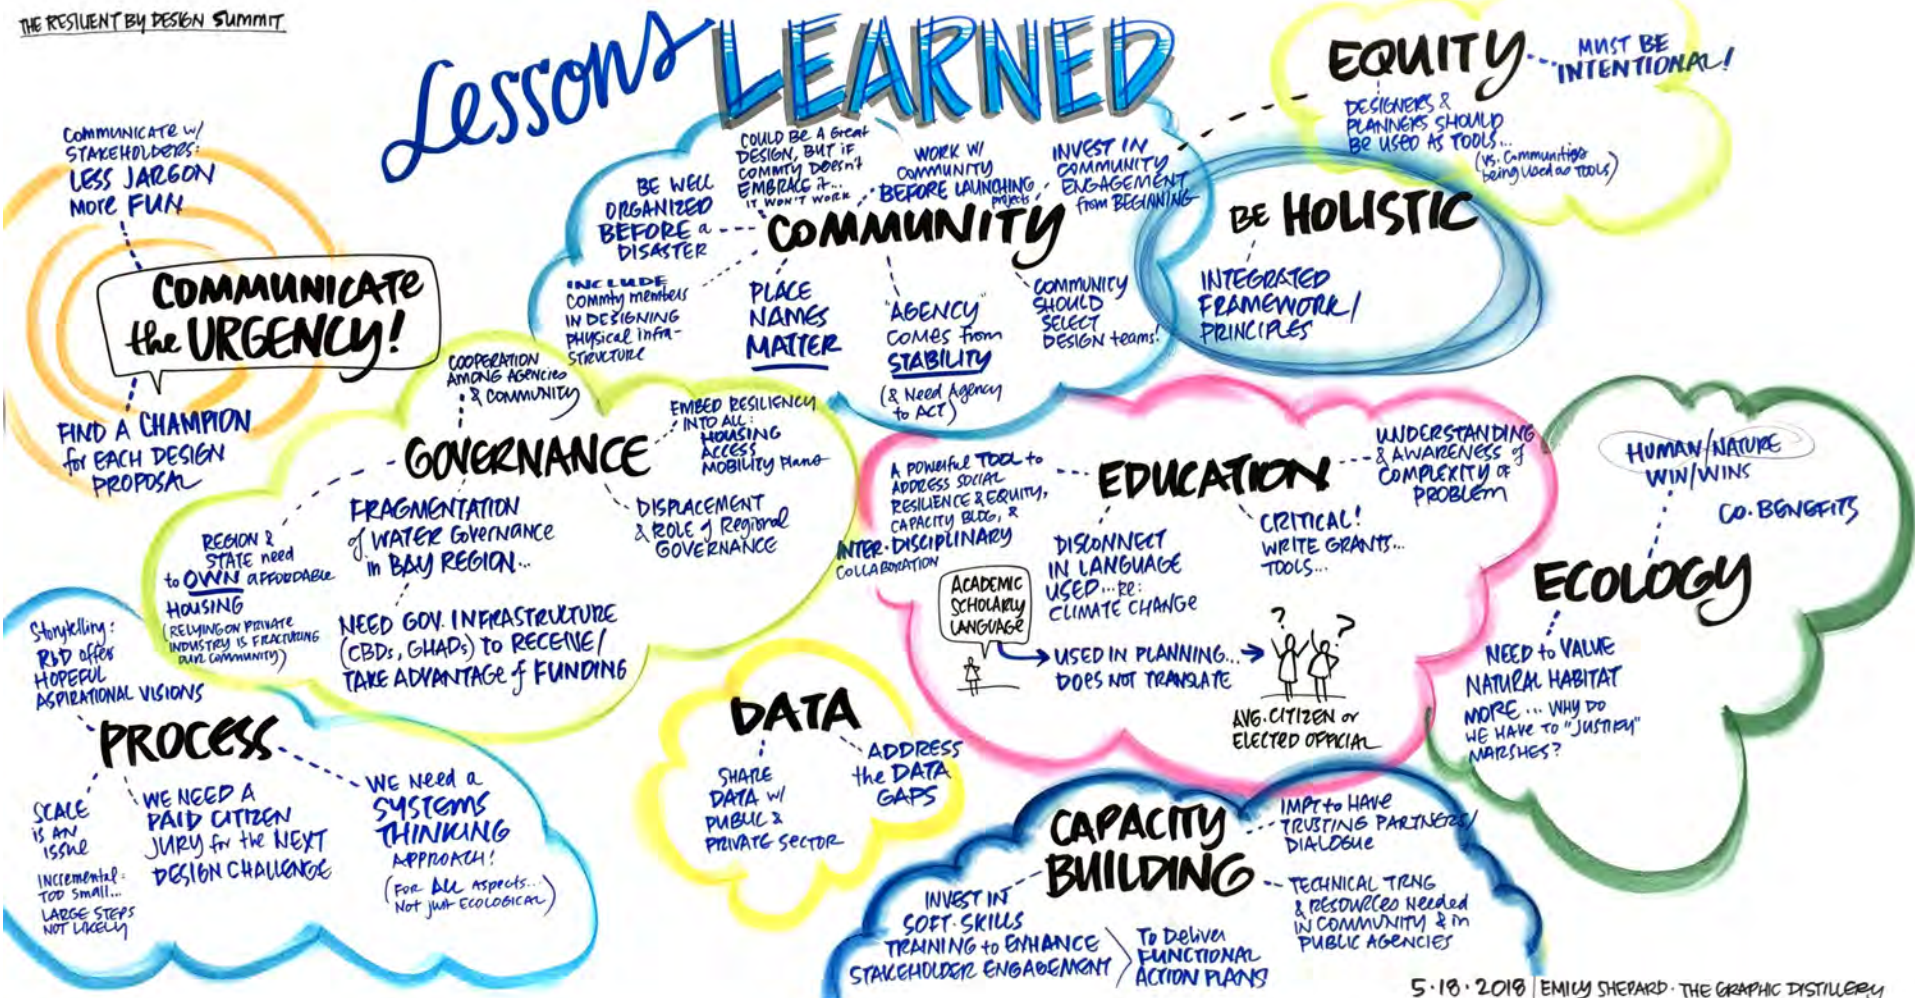 THE RESILIENT BY DESIGN SUMMIT
Lessons LEARNED
COMMUNICATE W/
STAKEHOLDERS:
LESS JARGON
MORE FUN
COMMUNICATE
the URGENCY!
FIND A CHAMPION
for EACH DESIGN
PROPOSAL
COMMUNITY
BE WELL
ORGANIZED
BEFORE a
DISASTER
COULD BE A Great
DESIGN, BUT iF
COMMTY DOESn't
EMBRACE iT...
IT WON'T WORK
WORK W/
COMMUNITY
BEFORE LAUNCHING
projects
INVEST IN
COMMUNITY
ENGAGEMENT
from BEGINNING
INCLUDE
COMMTY members
IN DESIGNING
PHYSICAL infra-
STRUCTURE
PLACE
NAMES
MATTER
"AGENCY"
COMES from
STABILITY
(& Need Agency
to ACT)
COMMUNITY
SHOULD
SELECT
DESIGN teams!
EQUITY
MUST BE
INTENTIONAL!
DESIGNERS &
PLANNERS SHOULD
BE USED AS TOOLS...
(vs. Communities
being used as TOOLS)
BE HOLISTIC
INTEGRATED
FRAMEWORK/
PRINCIPLES
GOVERNANCE
COOPERATION
AMONG AGENCIES
& COMMUNITY
EMBED RESILIENCY
INTO ALL:
HOUSING
ACCESS
MOBILITY PLANS
REGION &
STATE need
to OWN AFFORDABLE
HOUSING
(RELYING ON PRIVATE
INDUSTRY IS FRACTURING
OUR COMMUNITY)
FRAGMENTATION
of WATER Governance
in BAY REGION...
DISPLACEMENT
& ROLE of Regional
GOVERNANCE
NEED GOV. INFRASTRUCTURE
(CBDs, GHADs) to RECEIVE/
TAKE ADVANTAGE of FUNDING
EDUCATION
A POWERFUL TOOL to
ADDRESS SOCIAL
RESILIENCE & EQUITY,
CAPACITY BLDG, &
INTER-DISCIPLINARY
COLLABORATION
UNDERSTANDING
& AWARENESS of
COMPLEXITY OF
PROBLEM
DISCONNECT
IN LANGUAGE
USED...RE:
CLIMATE CHANGE
CRITICAL!
WRITE GRANTS...
TOOLS...
ACADEMIC
SCHOLARLY
LANGUAGE
USED IN PLANNING...
DOES NOT TRANSLATE
? ?
AVG. CITIZEN or
ELECTED OFFICIAL
ECOLOGY
HUMAN/NATURE
WIN/WINS
CO-BENEFITS
NEED to VALUE
NATURAL HABITAT
MORE... WHY DO
WE HAVE TO "JUSTIFY"
MARSHES?
PROCESS
Storytelling:
RbD offer
HOPEFUL
ASPIRATIONAL VISIONS
SCALE
IS AN
ISSUE
INCREMENTAL:
TOO SMALL...
LARGE STEPS
NOT LIKELY
WE NEED A
PAID CITIZEN
JURY for the NEXT
DESIGN CHALLENGE
WE NEED a
SYSTEMS
THINKING
APPROACH!
(FOR ALL ASPECTS...
NOT just ECOLOGICAL)
DATA
SHARE
DATA W/
PUBLIC &
PRIVATE SECTOR
ADDRESS
the DATA
GAPS
CAPACITY
BUILDING
IMPT to HAVE
TRUSTING PARTNERS/
DIALOGUE
INVEST IN
SOFT-SKILLS
TRAINING to ENHANCE
STAKEHOLDER ENGAGEMENT
To Deliver
FUNCTIONAL
ACTION PLANS
TECHNICAL TRNG
& RESOURCES Needed
IN COMMUNITY & in
PUBLIC AGENCIES
5·18·2018 | EMILY SHEPARD · THE GRAPHIC DISTILLERY